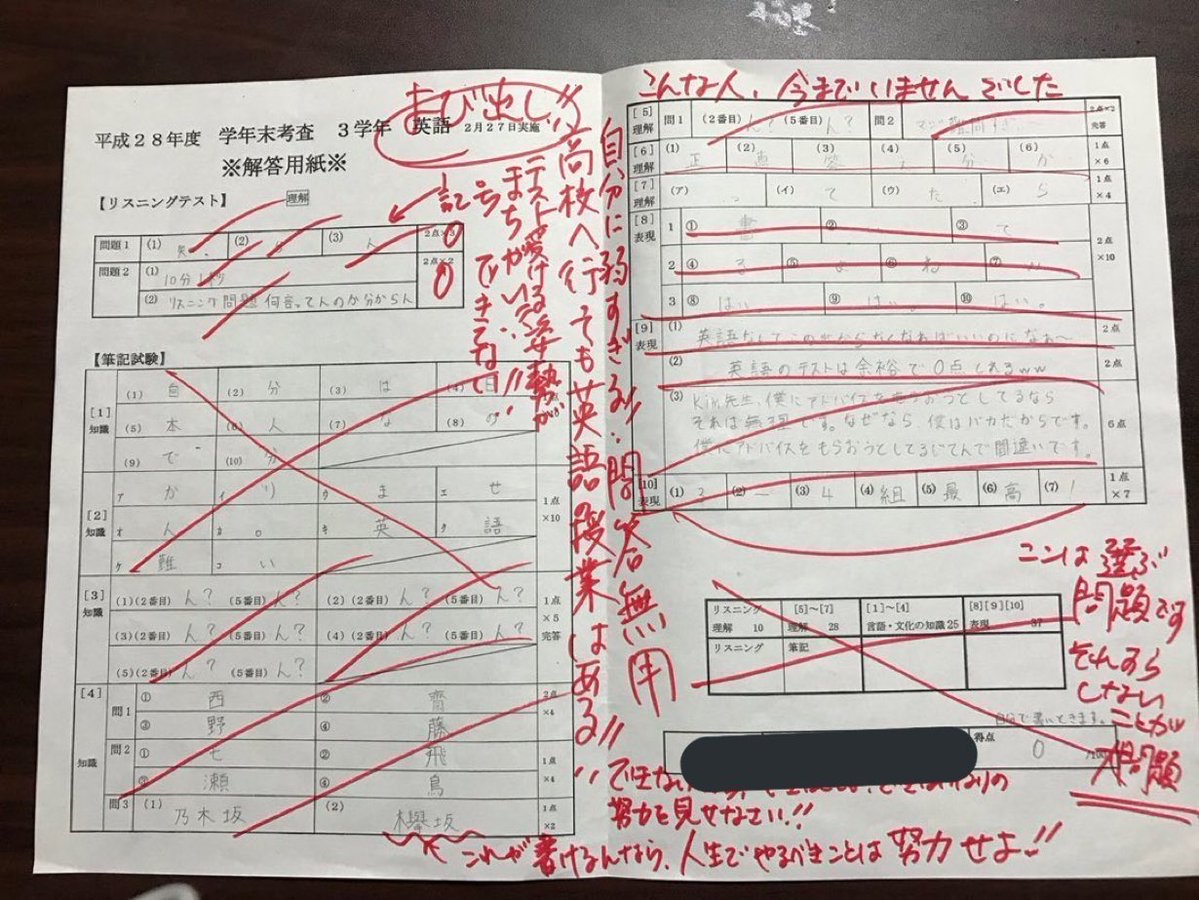 こんな人、今までいませんでした
よび出し!!
平成28年度 学年末考査 3学年 英語 2月27日実施
※解答用紙※
【リスニングテスト】 理解
問題1 (1) (2) (3) ん 2点×3 0
問題2 (1) 10分1秒 2点×2 0
(2) リスニング問題何言ってんのか分からん
記号
まちがい
テスト受ける姿勢が
できてない!!
高校へ行っても英語授業はある!!
自分に弱すぎる!!問答無用
【筆記試験】
[1] 知識 (1) 自 (2) 分 (3) は (4) 日
(5) 本 (6) 人 (7) な (8) の
(9) で (10) 分
[2] 知識 ア か イ り ウ ま エ せ 1点×10
オ ん カ 。 キ 英 ク 語
ケ 難 コ い
[3] 知識 (1)(2番目) ん? (5番目) ん? (2)(2番目) ん? (5番目) ん? 1点×5 完答
(3)(2番目) ん? (5番目) ん? (4)(2番目) ん? (5番目) ん?
(5)(2番目) ん? (5番目) ん?
[4] 知識 問1 ① 西 ② 齊 2点×4
③ 野 ④ 藤
問2 ① 七 ② 飛 1点×4
③ 瀬 ④ 鳥
問3 (1) 乃木坂 (2) 欅坂 1点×2
[5] 理解 問1 (2番目) ん? (5番目) ん? 問2 マジ難問すぎ 2点×2 完答
[6] 理解 (1) 正 (2) 直 (3) 答 (4) (5) 分 (6) か 1点×6
[7] 理解 (ア) っ (イ) て (ウ) た (エ) ら 1点×4
[8] 表現 1 ① 書 ② ③ て 2点×10
2 ④ る ⑤ よ ⑥ ね ⑦
3 ⑧ はい ⑨ はい ⑩ はい。
[9] 表現 (1) 英語なんてこの世からなくなればいいのになぁ〜 2点
(2) 英語のテストは余裕で0点とれるww 2点
(3) Kim先生、僕にアドバイスを貰おうとしてるなら 6点
それは無理です。なぜなら、僕はバカだからです。
僕にアドバイスをもらおうとしてるじてんで間違いです。
[10] 表現 (1) 3 (2) ー (3) 4 (4) 組 (5) 最 (6) 高 (7) ! 1点×7
ここは選ぶ
問題です
それすら
しない
ことが
大問題
リスニング 理解 10 [5]~[7] 理解 28 [1]~[4] 言語・文化の知識 25 [8][9][10] 表現 37
リスニング 筆記
自分で書いときます。
得点 0 /100
できない
努力を見せなさい!!
これが書けるんなら、人生でやるべきことは努力せよ!!